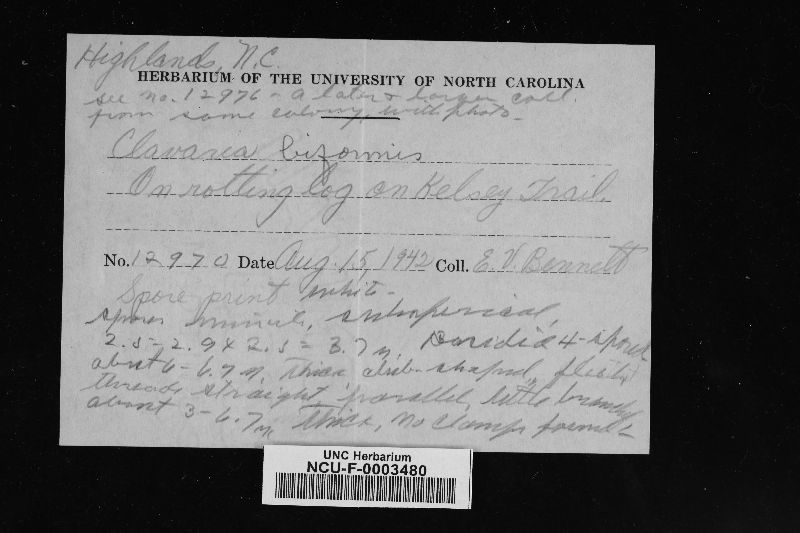 Highlands, N.C.
HERBARIUM OF THE UNIVERSITY OF NORTH CAROLINA
see no. 12976 - a later & larger coll.
from same colony, with photo -
Clavaria biformis
On rotting log on Kelsey Trail.
No. 12970 Date Aug. 15, 1942 Coll. E. V. Bennett
Spore print white -
spores minute, subspherical,
2.5 - 2.9 x 2.5 - 3.7 µ. Basidia 4-spored
about 6 - 6.7 µ thick, club-shaped, flesh
threads straight, parallel, little branched
about 3 - 6.7 µ thick, no clamps found -
UNC Herbarium
NCU-F-0003480